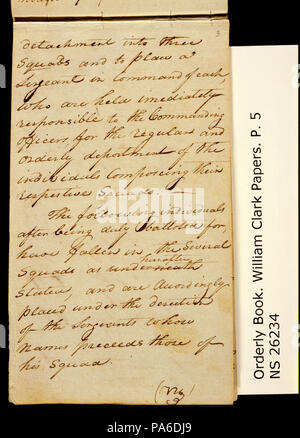 3
detachment into three
Squads and to place a
Sergeant in Command of each
who are held imediately
responsible to the Commanding
officers, for the regular and
orderly deportment of the
individuls Composeing their
respective Squads —
The following individuals
after being duly balloted for,
have fallen in the Several
hereafter
Squads as underneath
Stated, and are Accordingly
placed under the derection
of the Sergeants whose
names preceeds those of
his Squad.
Orderly Book. William Clark Papers. P. 5
NS 26234
alamy
Image ID: PA6DJ9
www.alamy.com